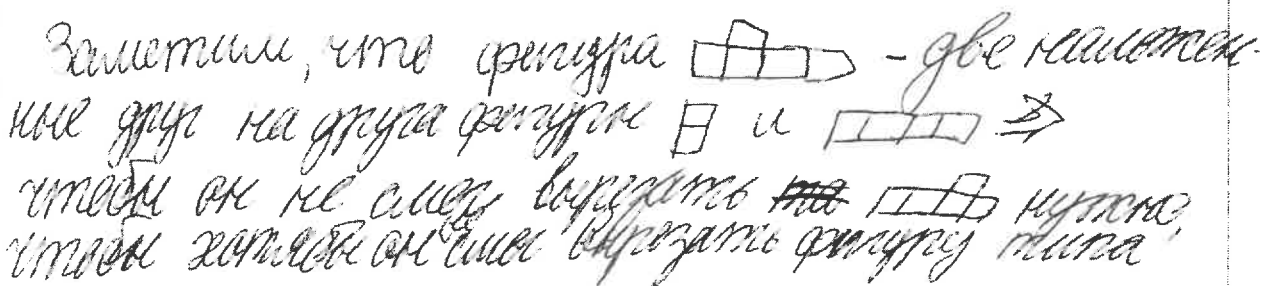 Заметим, что фигура - две наложен-
ные друг на друга фигуры и ⇒
чтобы он не смог вырезать нужно,
чтобы хотябы он смог вырезать фигуру типа